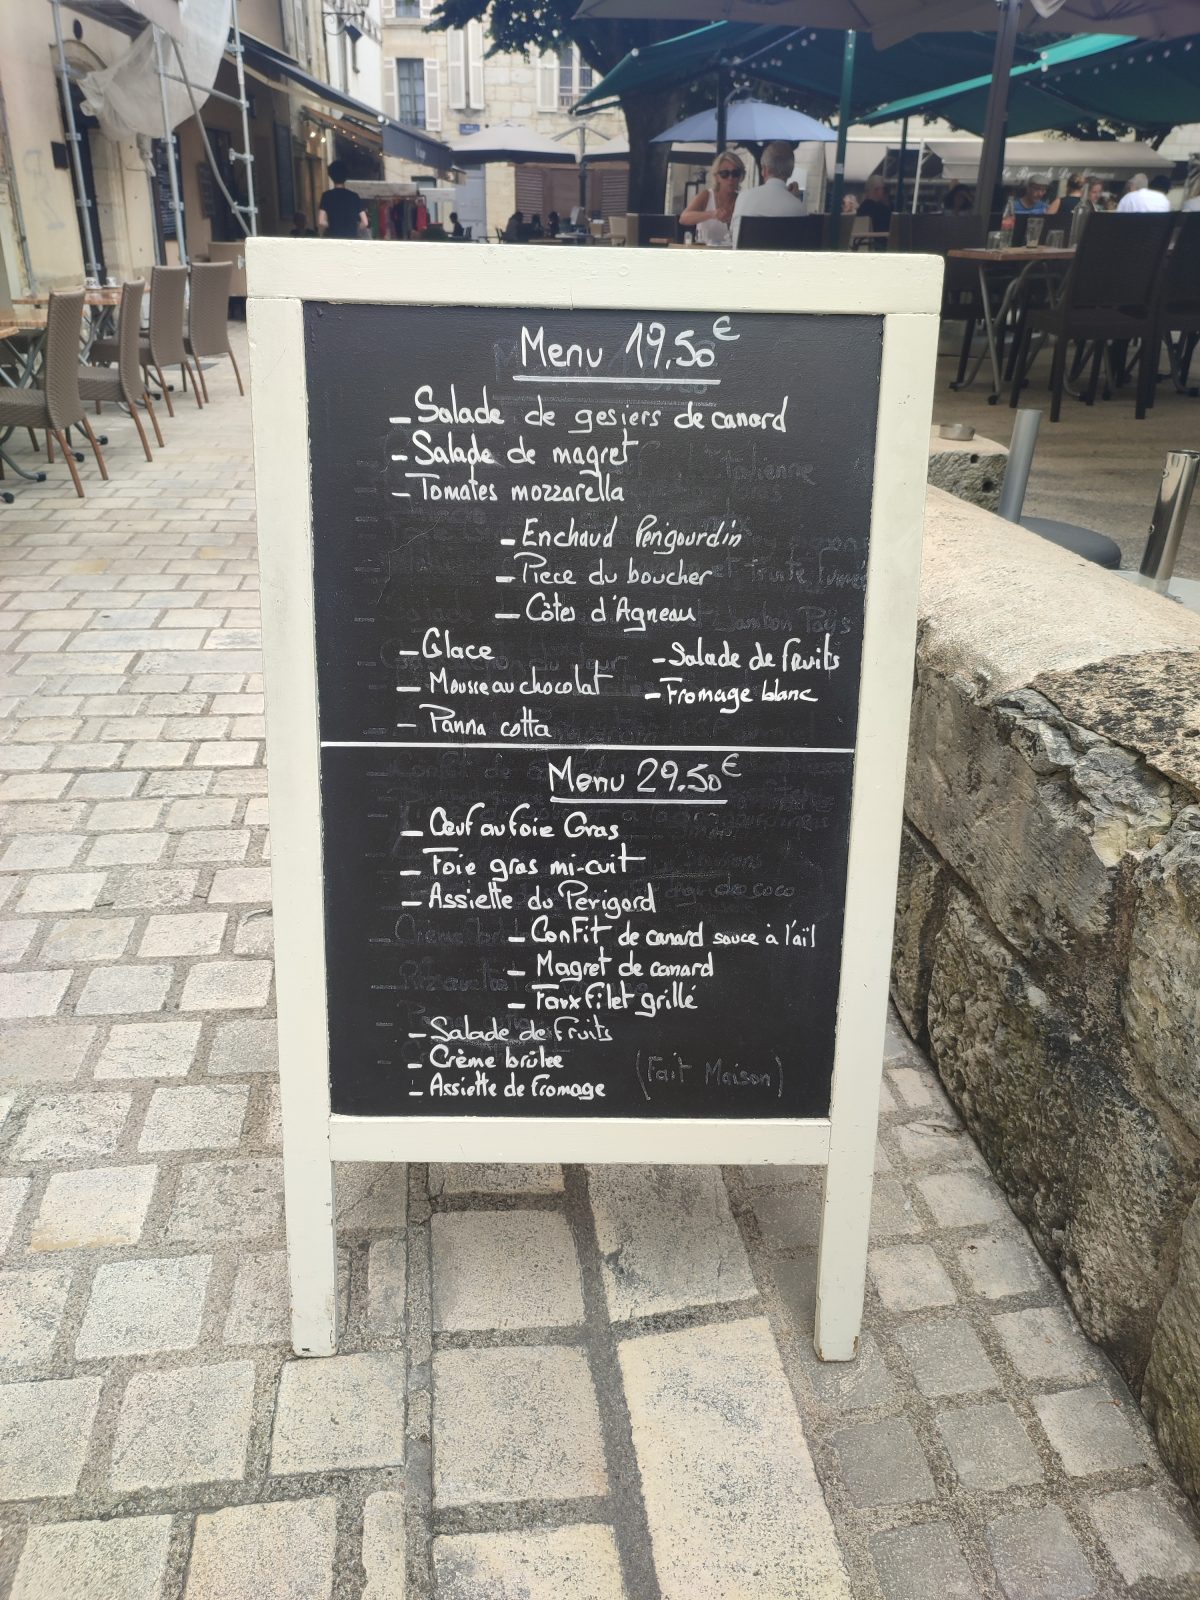 Menu 19.50€
- Salade de gesiers de canard
- Salade de magret
- Tomates mozzarella
- Enchaud Perigourdin
- Piece du boucher
- Côtes d'Agneau
- Glace
- Salade de fruits
- Mousse au chocolat
- Fromage blanc
- Panna cotta
Menu 29.50€
- Œuf au foie Gras
- Foie gras mi-cuit
- Assiette du Périgord
- Confit de canard sauce à l'aïl
- Magret de canard
- Faux filet grillé
- Salade de fruits
- Crème brûlée
(Fait Maison)
- Assiette de fromage